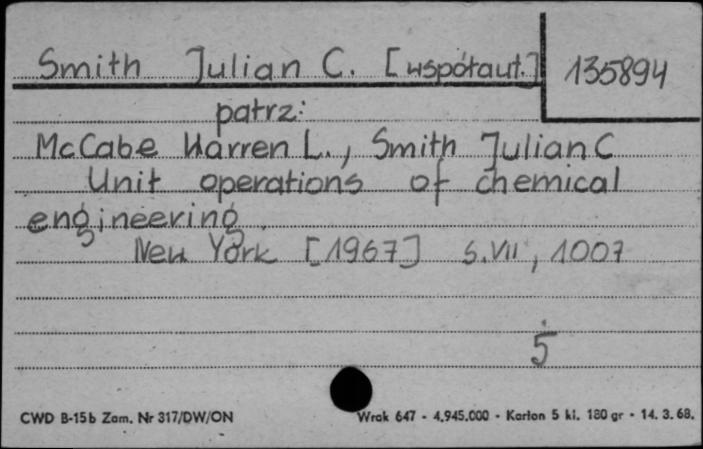 Smith Julian C. [współaut.] 135894
patrz:
McCabe Warren L., Smith Julian C
Unit operations of chemical
engineering.
New York [1967] s.VII, 1007
5
CWD B-15b Zam. Nr 317/DW/ON Wrak 647 - 4.945.000 - Karton 5 kl. 180 gr - 14. 3. 68.